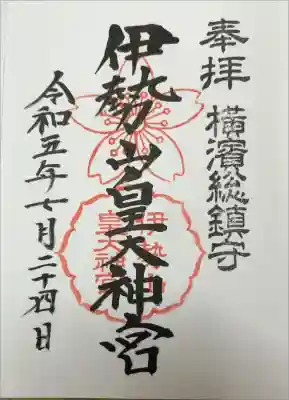 奉拝 横濱総鎮守
伊勢山皇大神宮
伊勢山
皇大神宮
令和五年七月二十四日